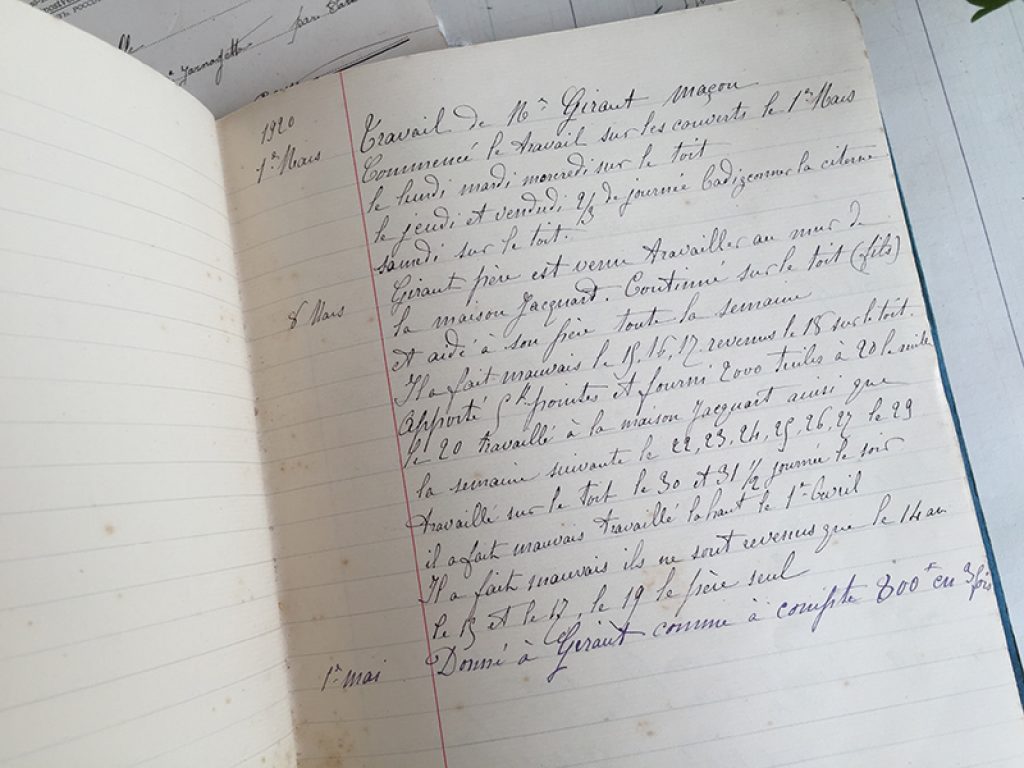 par
1920
1er Mars
Travail de Mr Giraut maçon
Commencé le travail sur les couverts le 1er Mars
le lundi mardi mercredi sur le toit
le jeudi et vendredi 2/3 de journée badigeonner la citerne
samedi sur le toit.
8 Mars
Giraut père est venu travailler au mur de
la maison Jacquart. Continué sur le toit (fils)
et aidé à son père toute la semaine
Il a fait mauvais le 15, 16, 17. revenus le 18 sur le toit.
Apporté 5k pointes et fourni 2000 tuiles à 20 le mille
le 20 travaillé à la maison Jacquart ainsi que
la semaine suivante le 22, 23, 24, 25, 26, 27 le 29
travaillé sur le toit le 30 et 31 1/2 journée le soir
il a fait mauvais travaillé la haut le 1er Avril
Il a fait mauvais ils ne sont revenus que le 14 au
le 15 et le 17, le 19 le père seul
1er mai
Donné à Giraut comme à compte 800f en 3 fois